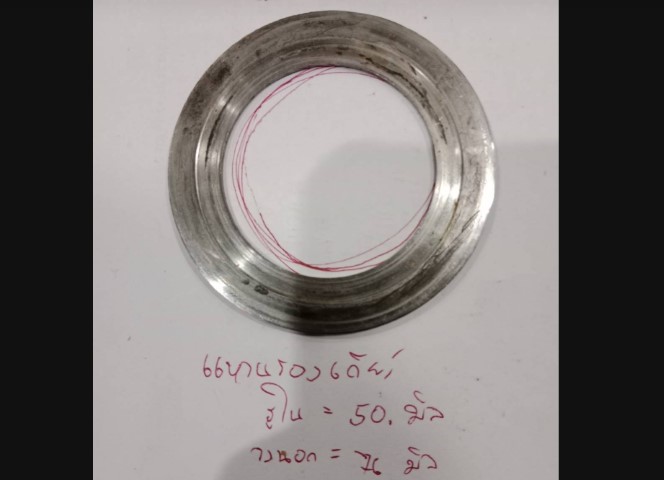 แหวนรองเกียร์
รูใน = 50. มิล
วงนอก = 76 มิล